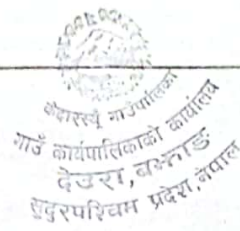 केदारस्यूँ गाउँपालिका
गाउँ कार्यपालिकाको कार्यालय
देउरा, बझाङ
सुदूरपश्चिम प्रदेश, नेपाल